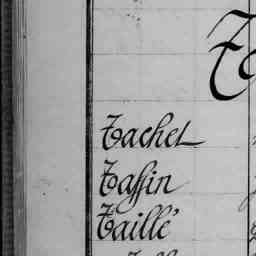 Tachet
Taffin
Taillé